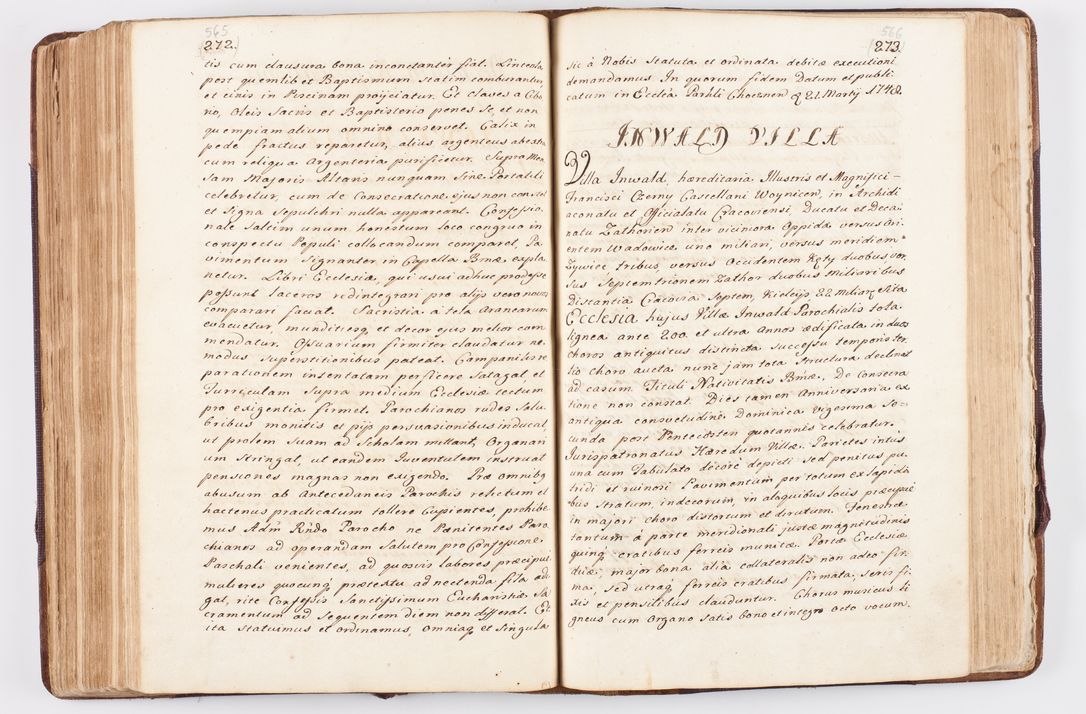 565
272.
tis cum clausura bona inconctanter fiat. Linteola
post quemlibet Baptismum statim comburantur,
et cinis in Piscinam proijciatur. Et claves a Cibo
rio, Oleis Sacris et Baptisterio penes se, et non
quempiam alium omnino conservet. Calix in
pede fractus reparetur, alius argenteus abeatur
cum reliqua Argenteria purificetur. Supra Men
sam Majoris Altaris nunquam sine Portatili
celebretur, cum de Consecratione ejus non constet
et Signa Sepulchri nulla appareant. Confessio
nale saltim unum honestum loco congruo in
conspectu Populi collocandum comparet, Pa
vimentum signanter in Capella Bmæ expla
netur. Libri Ecclesiæ, qui usui adhuc prodesse
possunt laceros redintegrari pro alijs vero novos
comparari faciat. Sacristia a tela Aranearum
evacuetur, munditiesq et decor ejus melior com
mendatur. Ossuarium firmiter claudatur ne
modus Superstitionibus pateat. Campanile re
parationem insentatam perficere satagat, et
Turriculam Supra medium Ecclesiæ tectum
pro exigentia firmet. Parochianos rudes Salu
bribus monitis et pijs persvasionibus inducat,
ut prolem suam ad Scholam mittant, Organari
um stringat, ut eandem Juventutem instruat
pensiones magnas non exigendo. Præ omnibq
abusum ab Antecedaneis Parochis relictum et
hactenus practicatum tollere Cupientes, prohibe
mus Adm Rndo Parocho ne Pænitentes Paro
chianos ad operandam Salutem pro Confessione
Paschali venientes, ad quosvis labores præcipue
mulieres quocunq prætextu ad nectenda fila adi
gat, rite Confessis Sanctissimum Eucharistiæ Sa
cramentum ad sequentem diem non differat. Et
ita statuimus et ordinamus, omniaq et singula
566
273.
sic à Nobis statuta et ordinata debitæ executioni
demandamus. In quorum fidem Datum et publi
catum in Ecclia Parhli Chocznen d 21. Martij 1748.
INWALD VILLA
Villa Inwald, hæreditaria Illustris et Magnifici
Francisci Czerny Castellani Woynicen, in Archidi
aconatu et Officialatu Cracoviensi, Ducatu et Deca
natu Zathorien inter viciniora Oppida versus Ori
entem Wadowice uno miliari, versus meridiem
Zywiec tribus, versus Occidentem Kęty duobus, ver
sus Septemtrionem Zathor duobus miliaribus
distantia Cracovia septem, Kielcijs 22 miliarq sita
Ecclesia hujus Villæ Inwald Parochialis tota
lignea ante 200 et ultra Annos ædificata in duos
choros antiquitus distincta successu temporis ter
tio choro aucta nunc jam tota structura declinat
ad casum Tituli Nativitatis Bmæ. De Consecra
tione non constat. Dies tamen Anniversaria ex
antiqua consvetudine Dominica vigesima se
cunda post Pentecosten quotannis celebratur.
Jurispatronatus Hæredum Villæ. Parietes intus
una cum Tabulato decore depicti sed penitus pu
tridi et ruinosi Pavimentum per totum ex lapidi
bus stratum, indecorum, in aliquibus locis præcipue
in majori choro distortum et dirutum. Fenestræ
tantum à parte meridionali justæ magnitudinis
quinq cratibus ferreis munitæ. Portæ Ecclesiæ
duæ, major bona alia collateralis non adeo fir
ma, sed utraq ferreis cratibus firmata, seris fi
xis et pensilibus clauduntur. Chorus musicus li
gneus cum Organo satis bono et integro octo vocum,